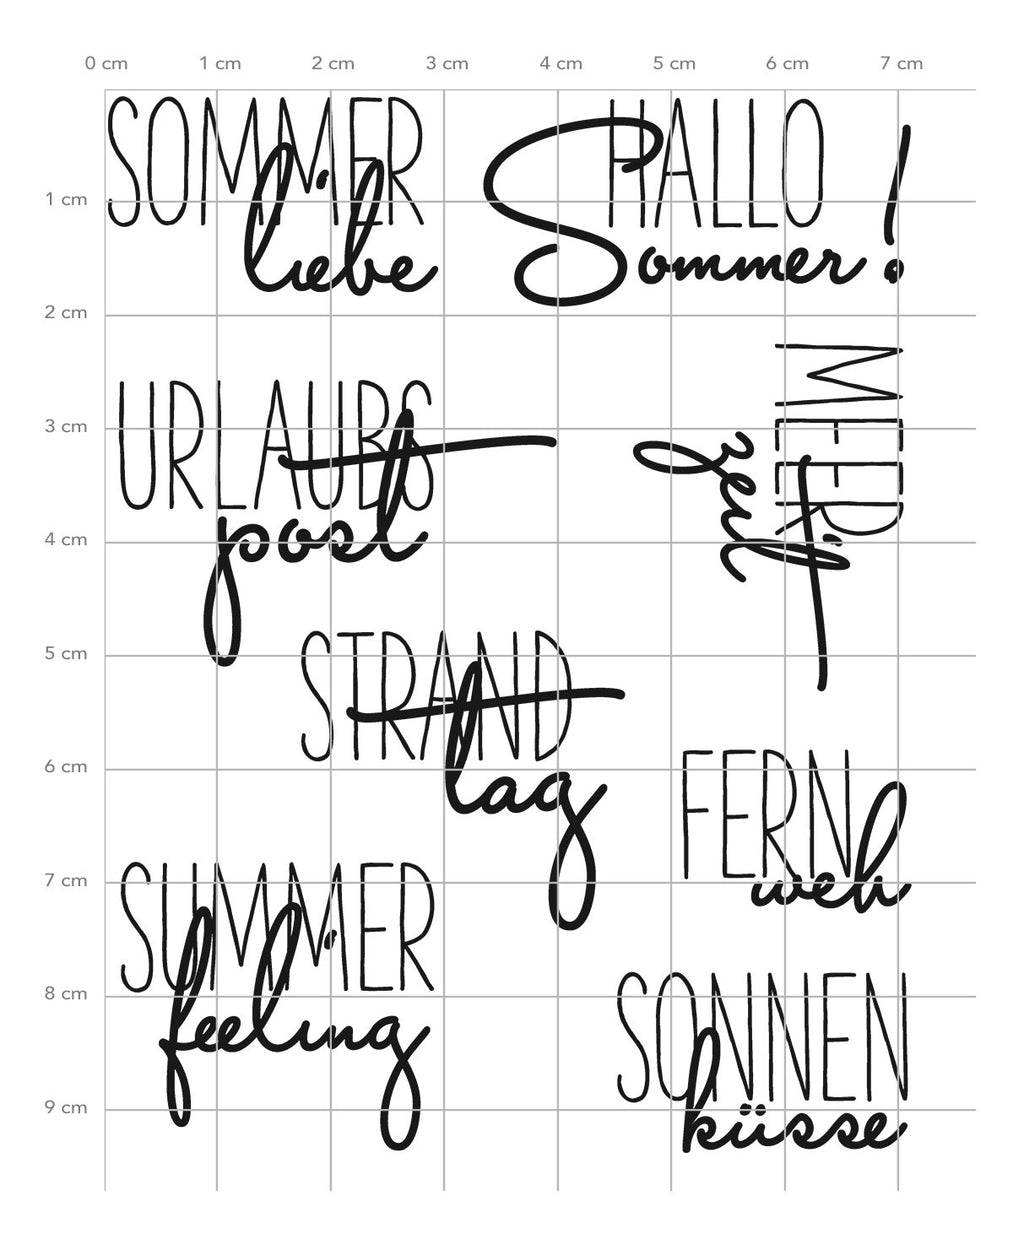 0 cm 1 cm 2 cm 3 cm 4 cm 5 cm 6 cm 7 cm
1 cm
2 cm
3 cm
4 cm
5 cm
6 cm
7 cm
8 cm
9 cm
SOMMER
liebe
HALLO
Sommer!
URLAUBS
post
MEER
zeit
STRAND
tag
FERN
weh
SUMMER
feeling
SONNEN
küsse